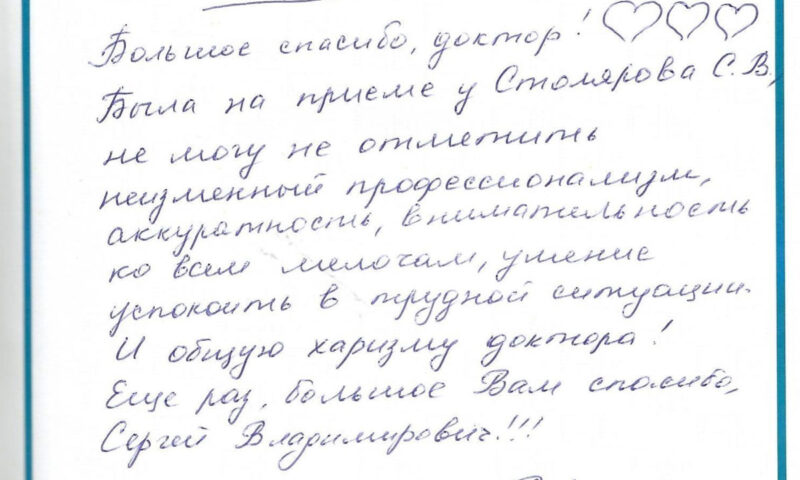 Большое спасибо, доктор! ♡♡♡
Была на приеме у Столярова С.В.,
не могу не отметить
неизменный профессионализм,
аккуратность, внимательность
ко всем мелочам, умение
успокоить в трудной ситуации.
И общую харизму доктора!
Еще раз, большое Вам спасибо,
Сергей Владимирович!!!